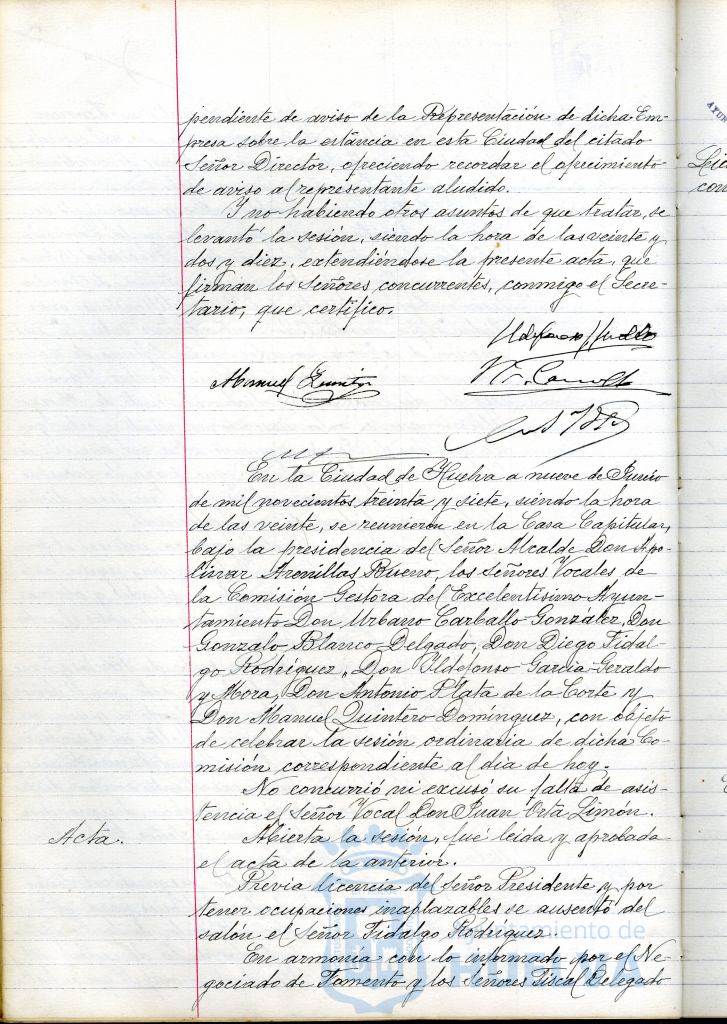 pendiente de aviso de la Representación de dicha Em-
presa sobre la estáncia en esta Ciudad del citado
Señor Director, ofreciendo recordar el ofrecimiento
de aviso al representante aludido.
Y no habiendo otros asuntos de que tratar, se
levantó la sesión, siendo la hora de las veinte y
dos y diez, extendiéndose la presente acta, que
firman los Señores concurrentes, conmigo el Secre-
tario, que certifico.
Manuel Quintero
En la Ciudad de Huelva a nueve de Junio
de mil novecientos treinta y siete, siendo la hora
de las veinte, se reunieron en la Casa Capitular,
bajo la presidencia del Señor Alcalde Don Apo-
linar Arenillas Bueno, los Señores Vocales de
la Comisión Gestora del Excelentísimo Ayun-
tamiento Don Urbano Carballo González, Don
Gonzalo Blanco Delgado, Don Diego Fidal-
go Rodríguez, Don Ildefonso García-Geraldo
y Mora, Don Antonio Plata de la Corte y
Don Manuel Quintero Domínguez, con objeto
de celebrar la sesión ordinaria de dicha Co-
misión correspondiente al día de hoy.
No concurrió ni excusó su falta de asis-
tencia el Señor Vocal Don Juan Orta Limón.
Acta.
Abierta la sesión, fué leida y aprobada
el acta de la anterior.
Previa licencia del Señor Presidente y por
tener ocupaciones inaplazables se ausentó del
salón el Señor Fidalgo Rodríguez.
En armonía con lo informado por el Ne-
gociado de Fomento y los Señores Fiscal Delegado